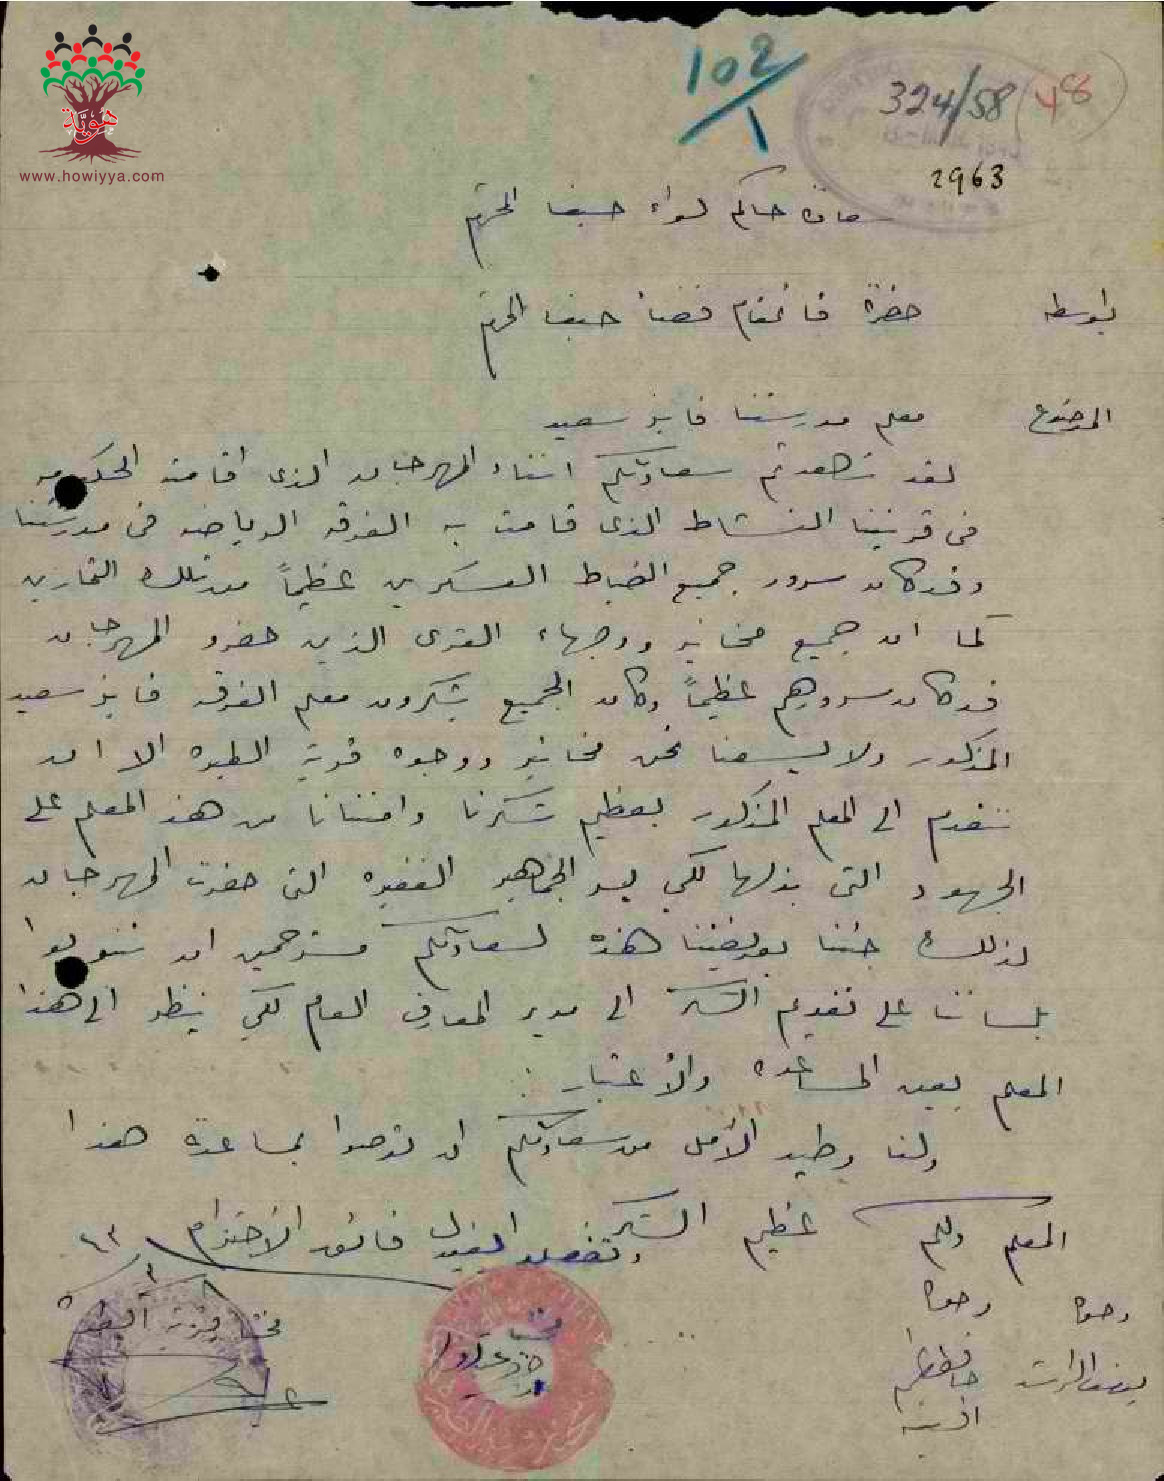 هويّة
www.howiyya.com
102/1
324/58 (48)
2963
سعادة حاكم لواء حيفا المحترم
بواسطة حضرة قائمقام قضاء حيفا المحترم
الموضوع معلم مدرستنا فايز سعيد
لقد شهدتم سعادتكم اثناء المهرجان الذى اقامته الحكومه
فى قريتنا النشاط الذى قامت به الفرقه الرياضيه فى مدرستنا
وقد كان سرور جميع الضباط العسكرين عظيماً من تلك التمارين
كما ان جميع مخاتير ووجهاء القرى الذين حضرو المهرجان
قد كان سرورهم عظيماً وكان الجميع يشكرون معلم الفرقه فايز سعيد
المذكور ولا يسعنا نحن مخاتير ووجوه قرية الطيره الا ان
نتقدم الى المعلم المذكور بعظيم شكرنا وامتناننا من هذ المعلم على
الجهود التى بذلها لكي يسر الجماهير الغفيره التى حضرت المهرجان
لذلك جئنا بعريضتنا هذه لسعادتكم مسترحمين ان تنوبوا
بلساننا على تقديم الشكر الى مدير المعارف العام لكي ينظر الى هذا
المعلم بعين المساعده والأعتبار
ولنا وطيد الأمل من سعادتكم ان توصوا بمساعدة هذا
المعلم ولكم عظيم الشكر وتفضلو بقبول فائق الأحترام
مختار قرية
وجوه وجوه